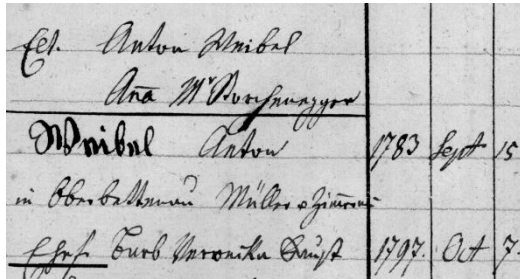 Elt. Anton Weibel
Ana Mr Storchenegger
Weibel Anton 1783 Sept 15
in Oberbettenau Müller & Zimerm
Ehef. Barb Veronika Baust 1797. Oct 7